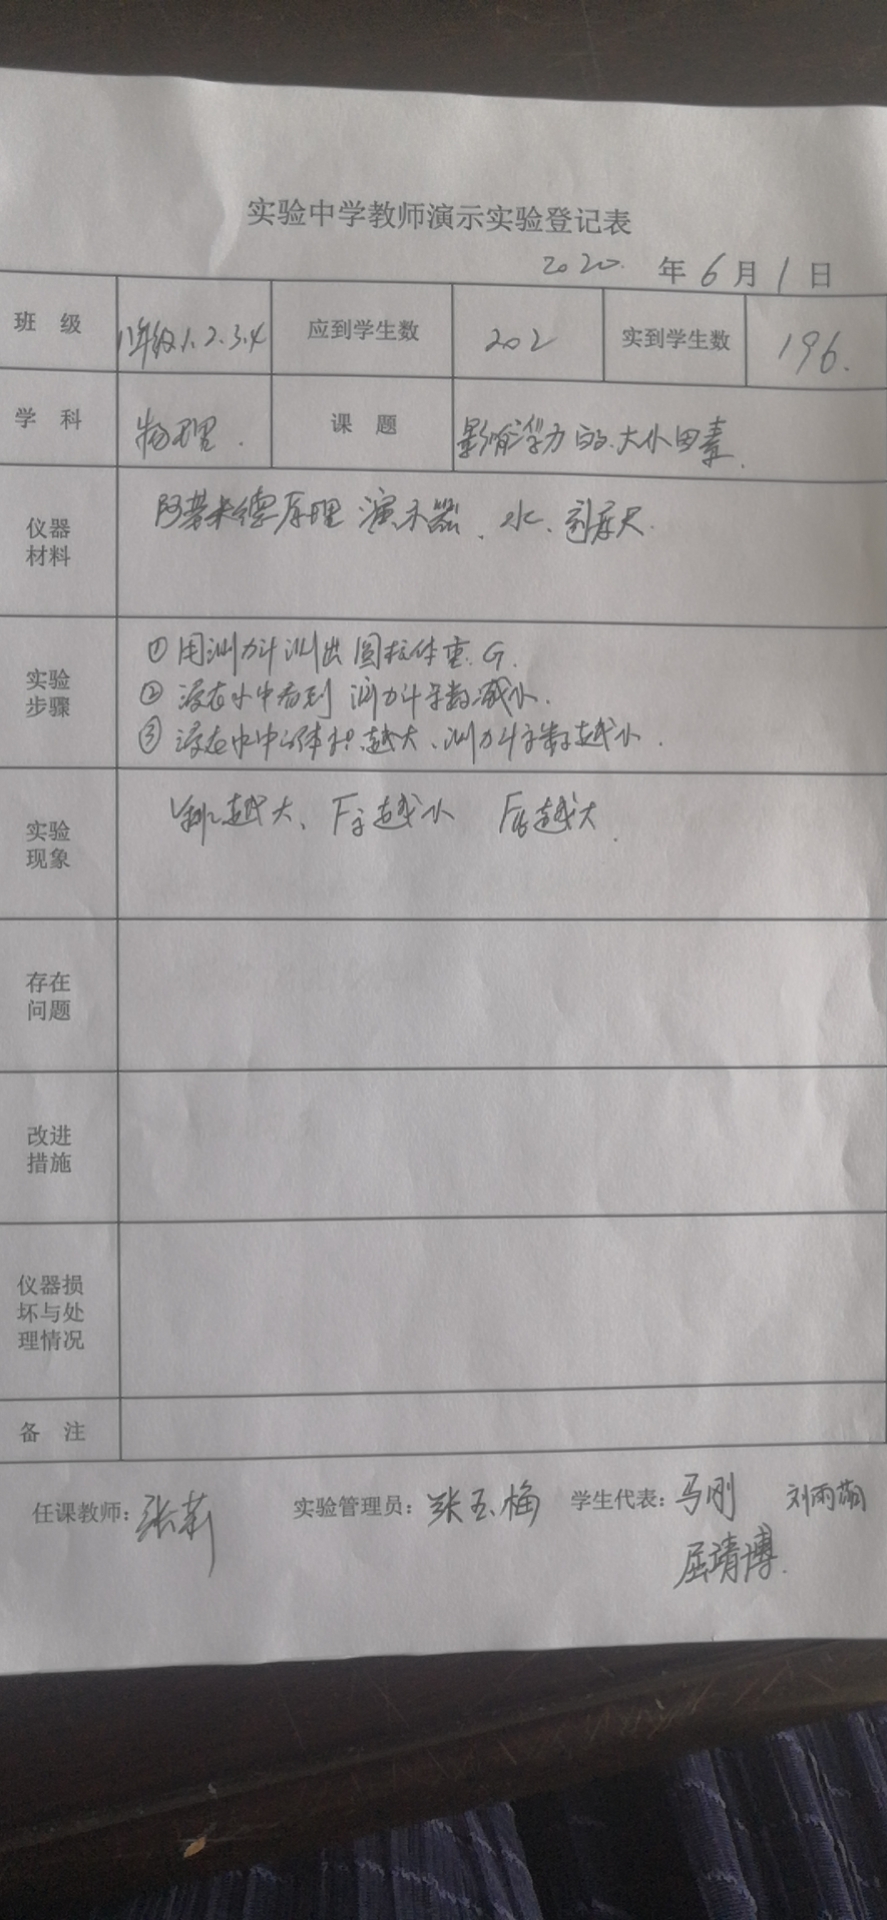 实验中学教师演示实验登记表
2020. 年 6 月 1 日
班 级 八年级1.2.3.4 应到学生数 202 实到学生数 196.
学 科 物理. 课 题 影响浮力的大小因素.
仪器材料 阿基米德原理演示器、水、刻度尺.
实验步骤 ①用测力计测出圆柱体重G.
②浸在水中看到测力计示数减小.
③浸在水中的体积越大、测力计示数越小.
实验现象 V排越大、F示越小 F浮越大.
存在问题
改进措施
仪器损坏与处理情况
备 注
任课教师：张莉 实验管理员：张玉梅 学生代表：马刚 刘雨萌
屈靖博.